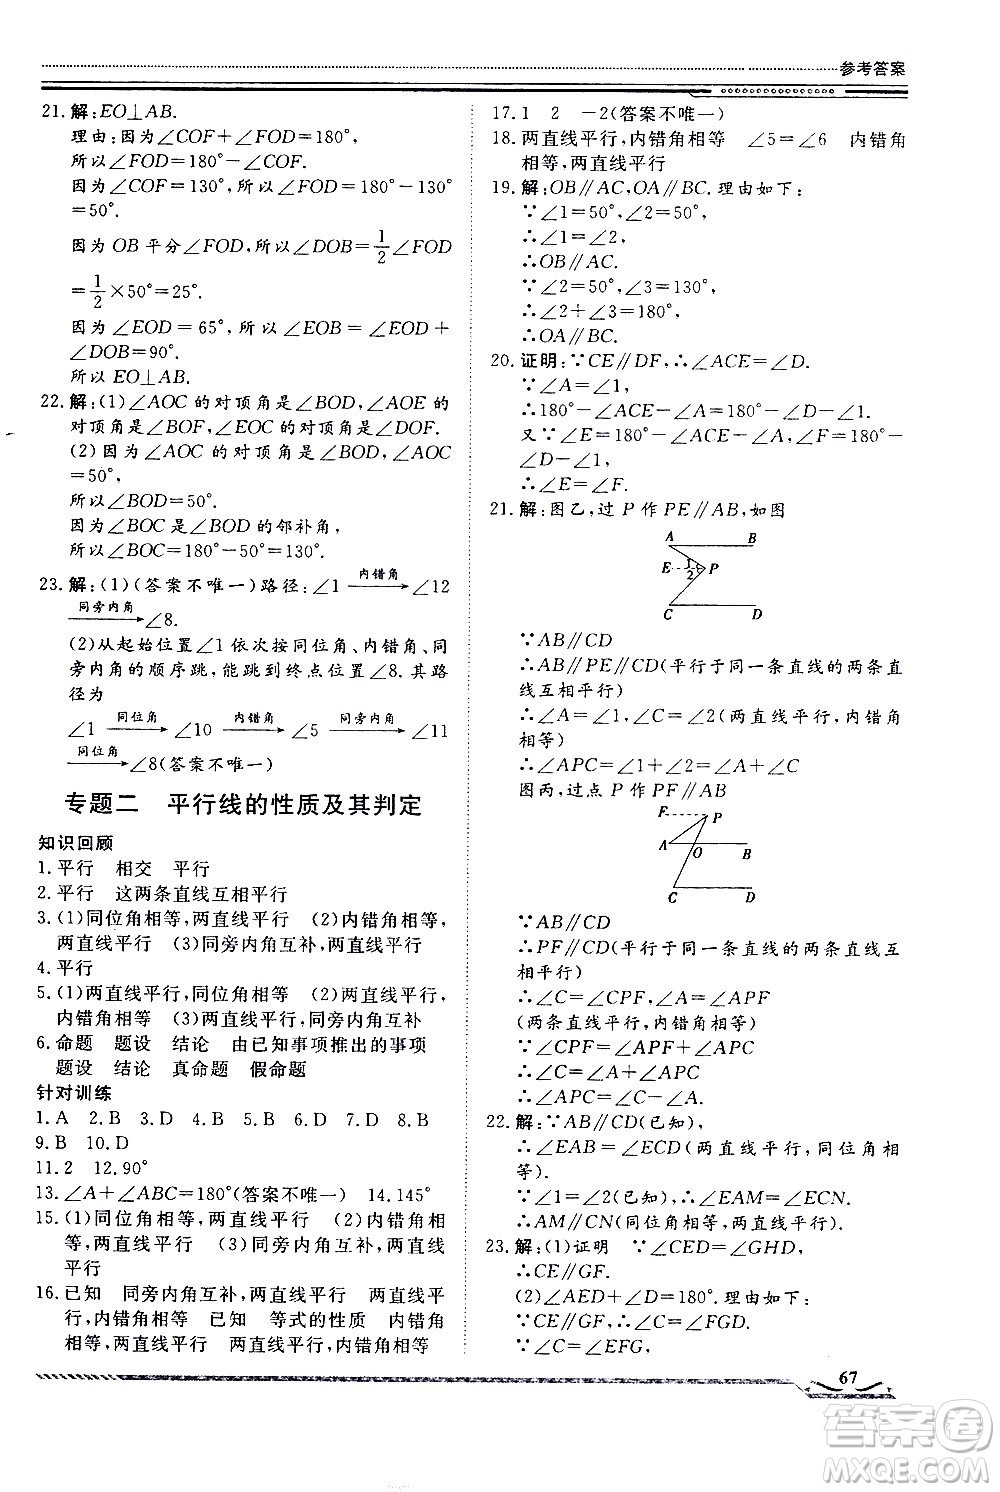 参考答案
21.解:EO⊥AB.
理由:因为∠COF+∠FOD=180°,
所以∠FOD=180°-∠COF.
因为∠COF=130°,所以∠FOD=180°-130°
=50°.
因为 OB 平分∠FOD,所以∠DOB=1/2∠FOD
=1/2×50°=25°.
因为∠EOD=65°,所以∠EOB=∠EOD+
∠DOB=90°.
所以 EO⊥AB.
22.解:(1)∠AOC 的对顶角是∠BOD,∠AOE 的
对顶角是∠BOF,∠EOC 的对顶角是∠DOF.
(2)因为∠AOC 的对顶角是∠BOD,∠AOC
=50°,
所以∠BOD=50°.
因为∠BOC 是∠BOD 的邻补角,
所以∠BOC=180°-50°=130°.
23.解:(1)(答案不唯一)路径:∠1 内错角→ ∠12
同旁内角→ ∠8.
(2)从起始位置∠1 依次按同位角、内错角、同
旁内角的顺序跳,能跳到终点位置∠8.其路
径为
∠1 同位角→ ∠10 内错角→ ∠5 同旁内角→ ∠11
同位角→ ∠8(答案不唯一)
专题二 平行线的性质及其判定
知识回顾
1.平行 相交 平行
2.平行 这两条直线互相平行
3.(1)同位角相等,两直线平行 (2)内错角相等,
两直线平行 (3)同旁内角互补,两直线平行
4.平行
5.(1)两直线平行,同位角相等 (2)两直线平行,
内错角相等 (3)两直线平行,同旁内角互补
6.命题 题设 结论 由已知事项推出的事项
题设 结论 真命题 假命题
针对训练
1.A 2.B 3.D 4.B 5.D 6.D 7.D 8.D
9.B 10.D
11.2 12.90°
13.∠A+∠ABC=180°(答案不唯一) 14.145°
15.(1)同位角相等,两直线平行 (2)内错角相
等,两直线平行 (3)同旁内角互补,两直线
平行
16.已知 同旁内角互补,两直线平行 两直线平
行,内错角相等 已知 等式的性质 内错角
相等,两直线平行 两直线平行,内错角相等
17.1 2 -2(答案不唯一)
18.两直线平行,内错角相等 ∠5=∠6 内错角
相等,两直线平行
19.解:OB∥AC,OA∥BC.理由如下:
∵∠1=50°,∠2=50°,
∴∠1=∠2.
∴OB∥AC.
∵∠2=50°,∠3=130°,
∴∠2+∠3=180°.
∴OA∥BC.
20.证明:∵CE∥DF,∴∠ACE=∠D.
∵∠A=∠1,
∴180°-∠ACE-∠A=180°-∠D-∠1.
又∵∠E=180°-∠ACE-∠A,∠F=180°-
∠D-∠1,
∴∠E=∠F.
21.解:图乙,过 P 作 PE∥AB,如图
A B
E 1 2 P
C D
∵AB∥CD
∴AB∥PE∥CD(平行于同一条直线的两条直
线互相平行)
∴∠A=∠1,∠C=∠2(两直线平行,内错角
相等)
∴∠APC=∠1+∠2=∠A+∠C
图丙,过点 P 作 PF∥AB
F P
A O B
C D
∵AB∥CD
∴PF∥CD(平行于同一条直线的两条直线互
相平行)
∴∠C=∠CPF,∠A=∠APF
(两条直线平行,内错角相等)
∵∠CPF=∠APF+∠APC
∴∠C=∠A+∠APC
∴∠APC=∠C-∠A
22.解:∵AB∥CD(已知),
∴∠EAB=∠ECD(两直线平行,同位角相
等).
∵∠1=∠2(已知),∴∠EAM=∠ECN.
∴AM∥CN(同位角相等,两直线平行).
23.解:(1)证明 ∵∠CED=∠GHD,
∴CE∥GF.
(2)∠AED+∠D=180°.理由如下:
∵CE∥GF,∴∠C=∠FGD.
∵∠C=∠EFG,
67
答案圈
MXQE.COM